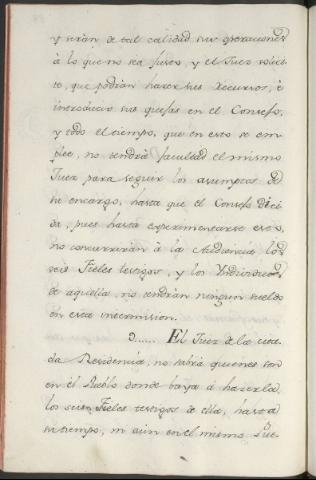 y serán de tal calidad sus operaciones
à lo que no sea justo, y el Juez sólici-
te, que podrán hacer sus recursos, é
introducir sus quejas en el Consejo,
y todo el tiempo, que en esto se em-
plee, no tendrá facultad el mismo
Juez para seguir los asumptos de
su encargo, hasta que el Consejo deci-
da, pues hasta experimentarse esto,
no concurrirán à la Audiencia los
seis Fieles testigos, y los Yndividuos
de aquella, no tendrán ningun sueldo
en esta intermision.
9...... El Juez de la cita-
da Residencia, no sabrá quienes son
en el Pueblo donde vaya á hacerla,
los seis Fieles testigos de ella, hasta
su tiempo, ni aun en el mismo Pue-